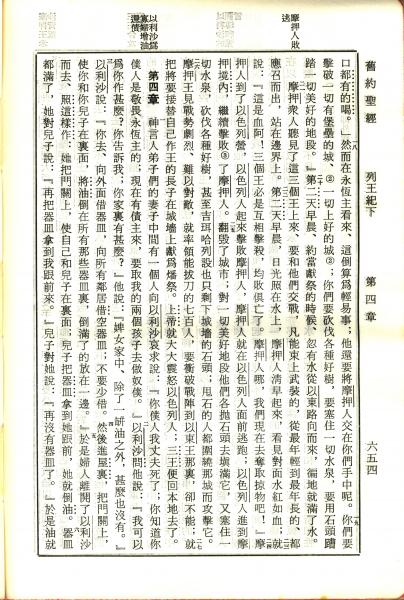 舊約聖經　列王紀下　第四章　六五四
摩押人敗逃
口都有的喝。』然而在永恆主看來、這倒算為輕易事；他還要將摩押人交在你們手中呢。你們要
擊破一切有堡壘的城、②一切上好的城③；你們要砍伐各種好樹，要塞住一切水泉，要用石頭蹧
踏一切美好的地段。』第二天早晨、約當獻祭的時候、忽有水從以東路向而來，徧地就滿了水。
摩押衆人聽見了這三個王上來，要和他們交戰，凡能束上武裝的，從最年輕到最年長的、都
應召而出，站在邊界上。第二天早晨，日光照在水上，摩押人清早起來，看見對面水紅如血；就
說：『這是血阿！三個王必是互相擊殺，均敗俱亡了。摩押哪，我們現在去奪取掠物吧！』摩
押人到了以色列營，以色列人起來擊敗摩押人，摩押人就在以色列人面前逃跑；以色列人進到摩
押境內，繼續擊敗了摩押人。翻毀了城市；對一切美好地段他們各拋石頭去填滿它，又塞住一
切水泉，砍伐各種好樹，甚至吉珥哈列設也只剩下城牆的石頭；甩石的人都圍繞那城而攻擊它。
摩押王見戰勢劇烈、難以對敵，就率領能拔刀的七百人，要衝破戰陣到以東王那裏，卻不能；就
把將要接替自己作王的長子在城牆上獻為燔祭。上帝就大大震怒以色列人；三王便回本地去了。
以利沙為寡婦增油還債
第四章　神言人弟子們的妻子中間有一個人向以利沙哀求說：『你僕人我丈夫死了；你知道你
僕人是敬畏永恆主的；現在有債主來，要取我的兩個孩子去做奴僕。』以利沙問他說：『我可以
為你作甚麼？你告訴我；你家裏有甚麼？』他說：『婢女家中、除了一缾油之外，甚麼也沒有。』
以利沙說：『你去、向外面借器皿，向所有鄰居借空器皿；不要少借。然後進屋裏，把門關上，
使你和你兒子在裏面，將油倒在所有那些器皿裏，倒滿了的放在一邊。』於是婦人離開了以利沙
而去、照這樣作：她把門關上，使自己和兒子在裏面；兒子把器皿拿到她跟前，她就倒油。器皿
都滿了，她對兒子說：『再把器皿拿到我跟前來。』兒子對她說：『再沒有器皿了。』於是油就